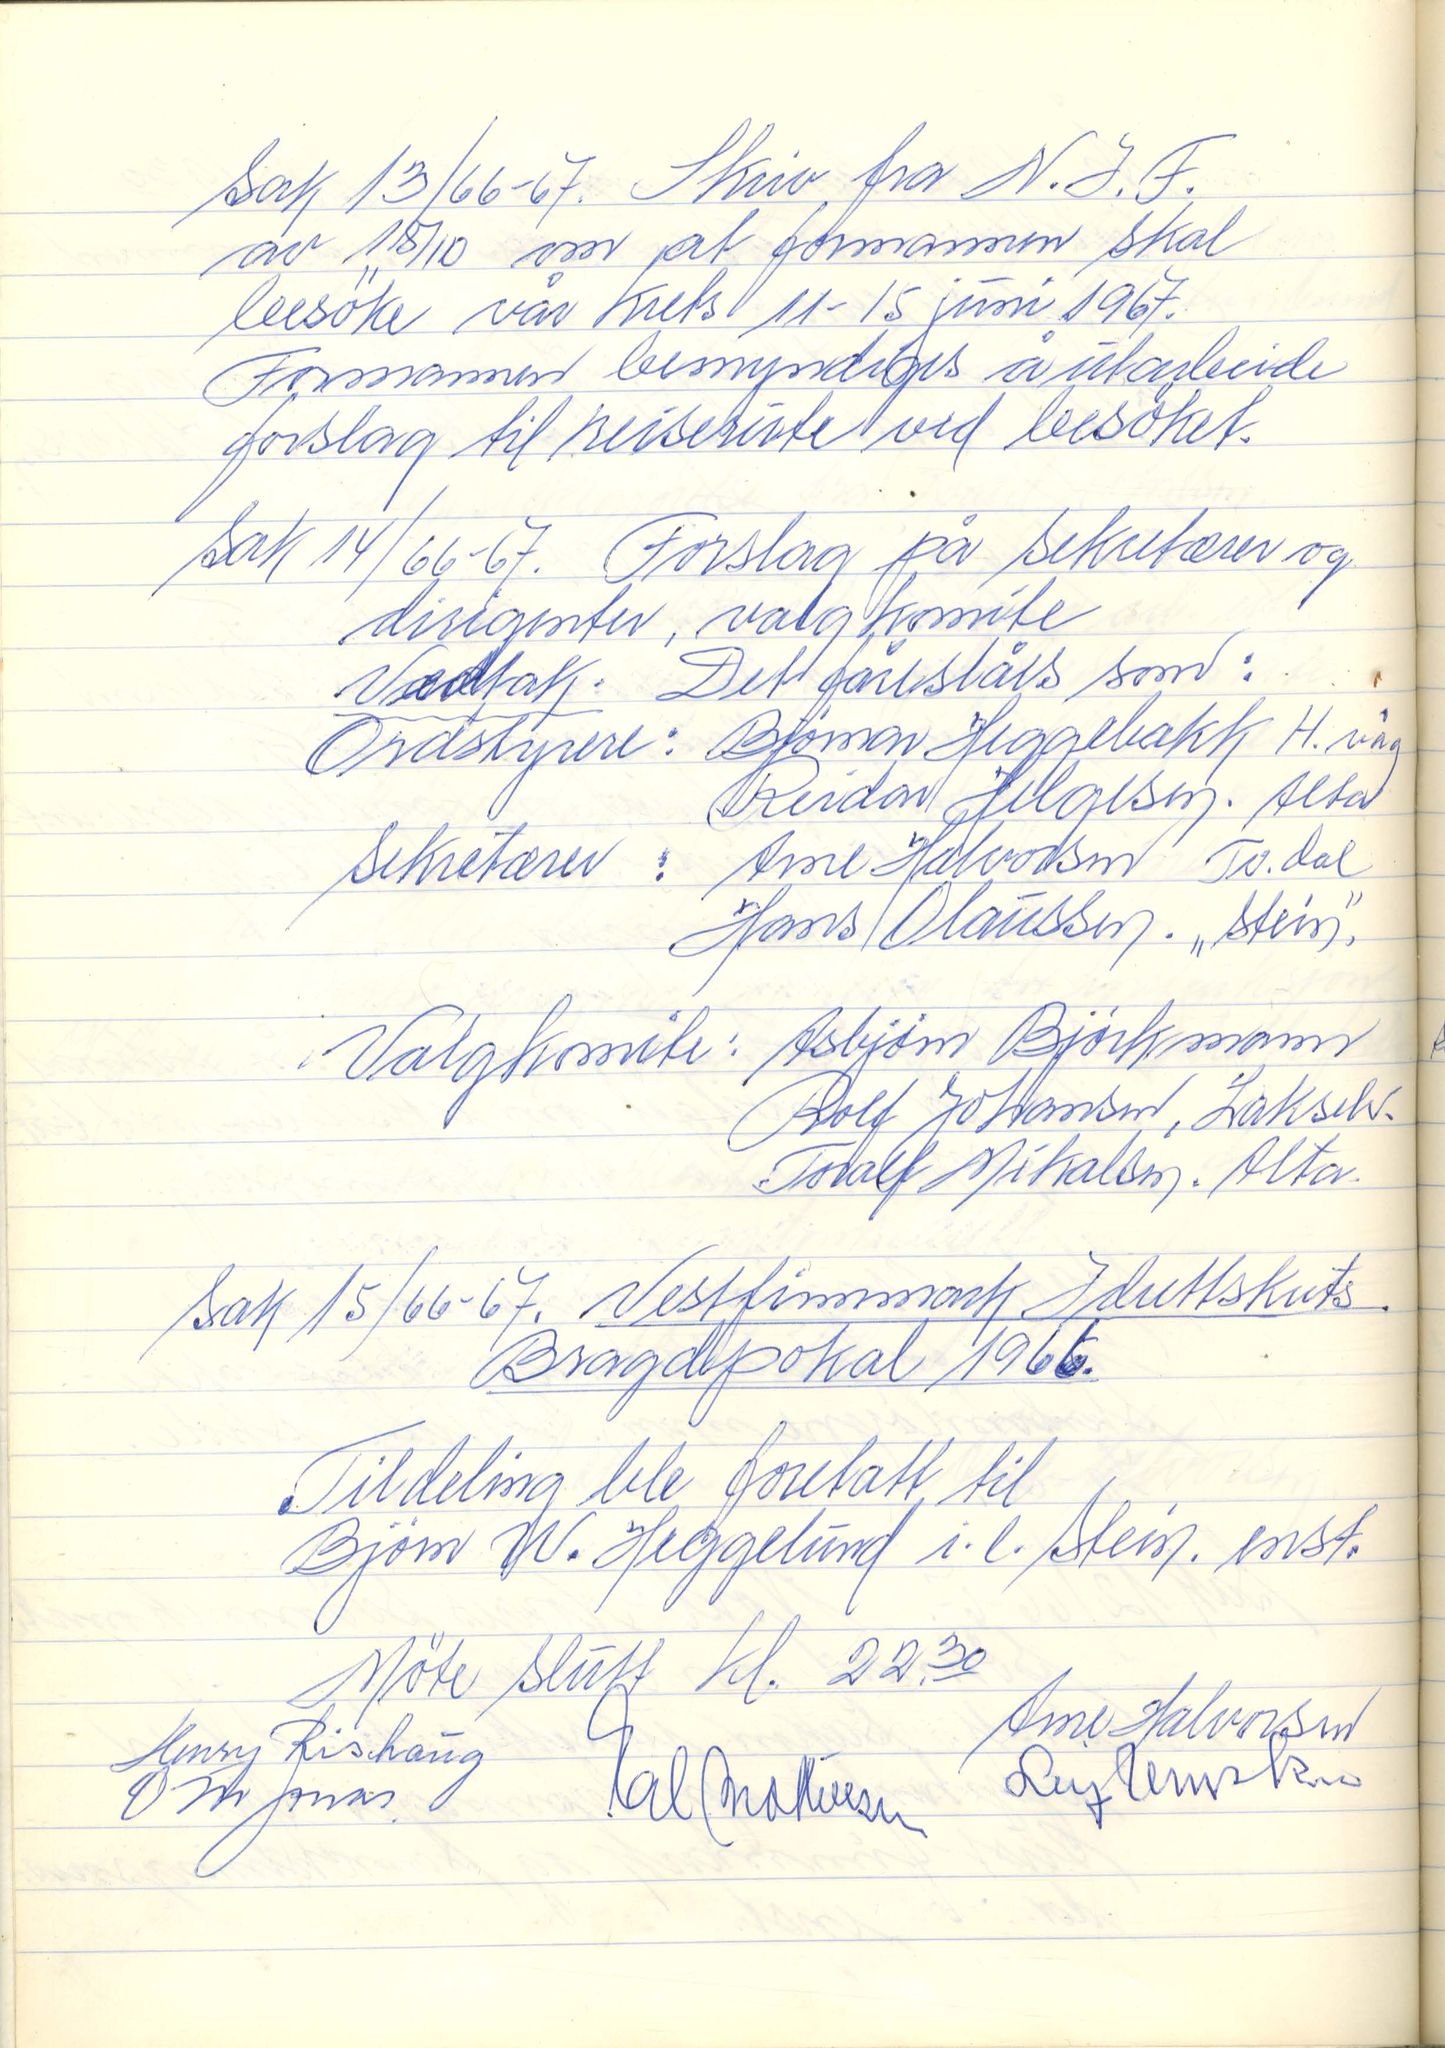 Sak 13/66-67. Skriv fra N.I.F.
av 18/10 om at formannen skal
besöke vår krets 11-15 juni 1967.
Formannen bemyndiges å utarbeide
forslag til reiserute ved besöket.
Sak 14/66-67. Forslag på sekretærer og
dirigenter, valgkomite
Vedtak. Det foreslåes som:
Ordstyrere: Bjömar Heggebakk H.våg
Reidar Helgesen. Alta
Sekretærer: Arne Halvorsen To.dal
Hans Olaussen. „Stein".
Valgkomite: Asbjörn Björkmann
Rolf Johansen, Lakselv.
Toralf Mikalsen. Alta.
Sak 15/66-67. Vestfinnmark Idrettskrets.
Bragdpokal 1966.
Tildeling ble foretatt til
Björn W. Heggelund i.l. Stein. enst.
Möte slutt kl. 22.30
Arne Halvorsen
Henry Rishaug
Pal Mathiesen